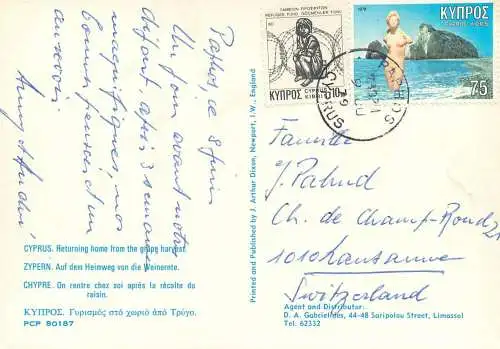 Paphos, ce 8 juin
Un jour avant notre
départ, après 3 semaines
magnifiques, nos
bonnes pensées et un
au revoir
CYPRUS. Returning home from the grape harvest.
ZYPERN. Auf dem Heimweg von die Weinernte.
CHYPRE. On rentre chez soi après la récolte du
raisin.
ΚΥΠΡΟΣ. Γυρισμός στό χωριό από Τρύγο.
PCP 90187
Printed and Published by J. Arthur Dixon, Newport, I.W., England
ΤΑΜΕΙΟΝ ΠΡΟΣΦΥΓΩΝ
REFUGEE FUND GÖÇMENLER FONU
ΚΥΠΡΟΣ
CYPRUS
KIBRIS
10
1979
ΚΥΠΡΟΣ
CYPRUS KIBRIS
75
PAPHOS
CYPRUS
79
Famille
J. Pahud
Ch. de Champ-Rond 21
1010 Lausanne
Switzerland
Agent and Distributor:
D. A. Gabrielides, 44-48 Saripolou Street, Limassol
Tel. 62332